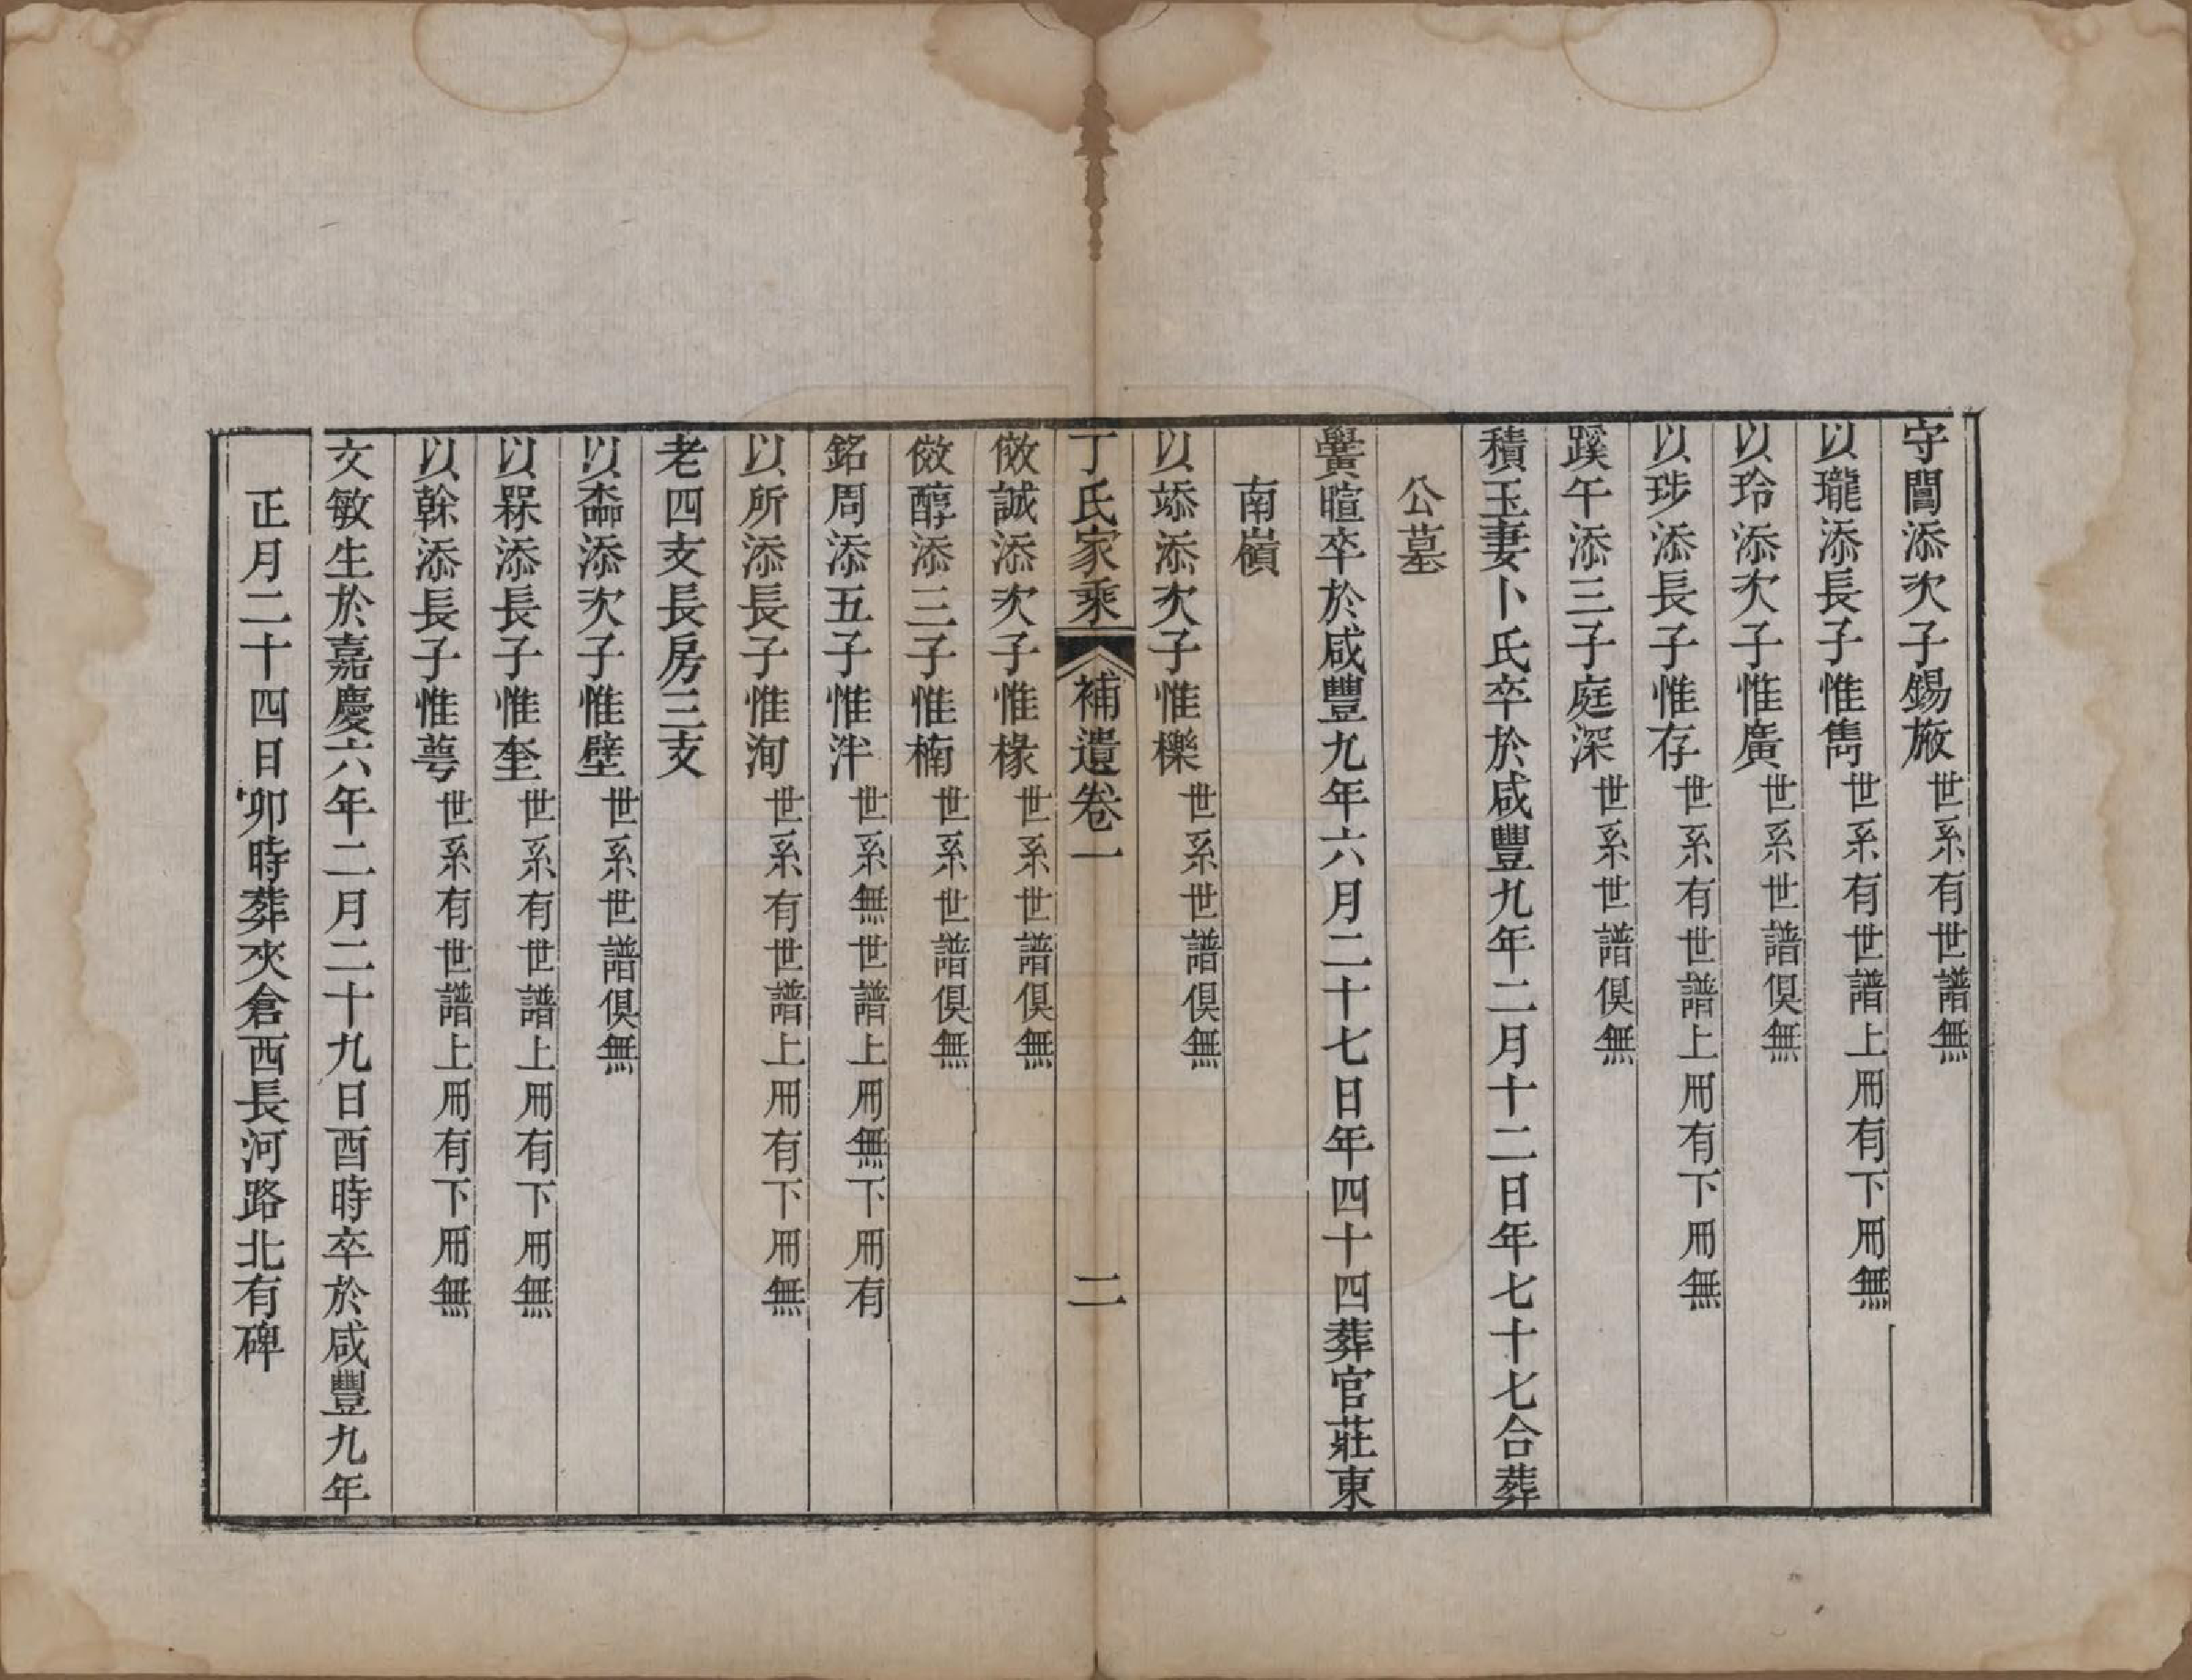 守誾添次子錫旅世系有世譜無
以瓏添長子惟雋世系有世譜上冊有下冊無
以玲添次子惟廣世系世譜俱無
以玚添長子惟存世系有世譜上冊有下冊無
蹊午添三子庭深世系世譜俱無
積玉妻卜氏卒於咸豐九年二月十二日年七十七合葬
公墓
暄卒於咸豐九年六月二十七日年四十四葬官莊東
南嶺
以添次子惟櫟世系世譜俱無
丁氏家乘 補遺卷一 二
儆誠添次子惟椽世系世譜俱無
儆醇添三子惟楠世系世譜俱無
銘周添五子惟泮世系無世譜上冊無下冊有
以所添長子惟洵世系有世譜上冊有下冊無
老四支長房三支
以添次子惟壁世系世譜俱無
以槑添長子惟奎世系有世譜上冊有下冊無
以幹添長子惟萼世系有世譜上冊有下冊無
文敏生於嘉慶六年二月二十九日酉時卒於咸豐九年
正月二十四日卯時葬夾倉西長河路北有碑